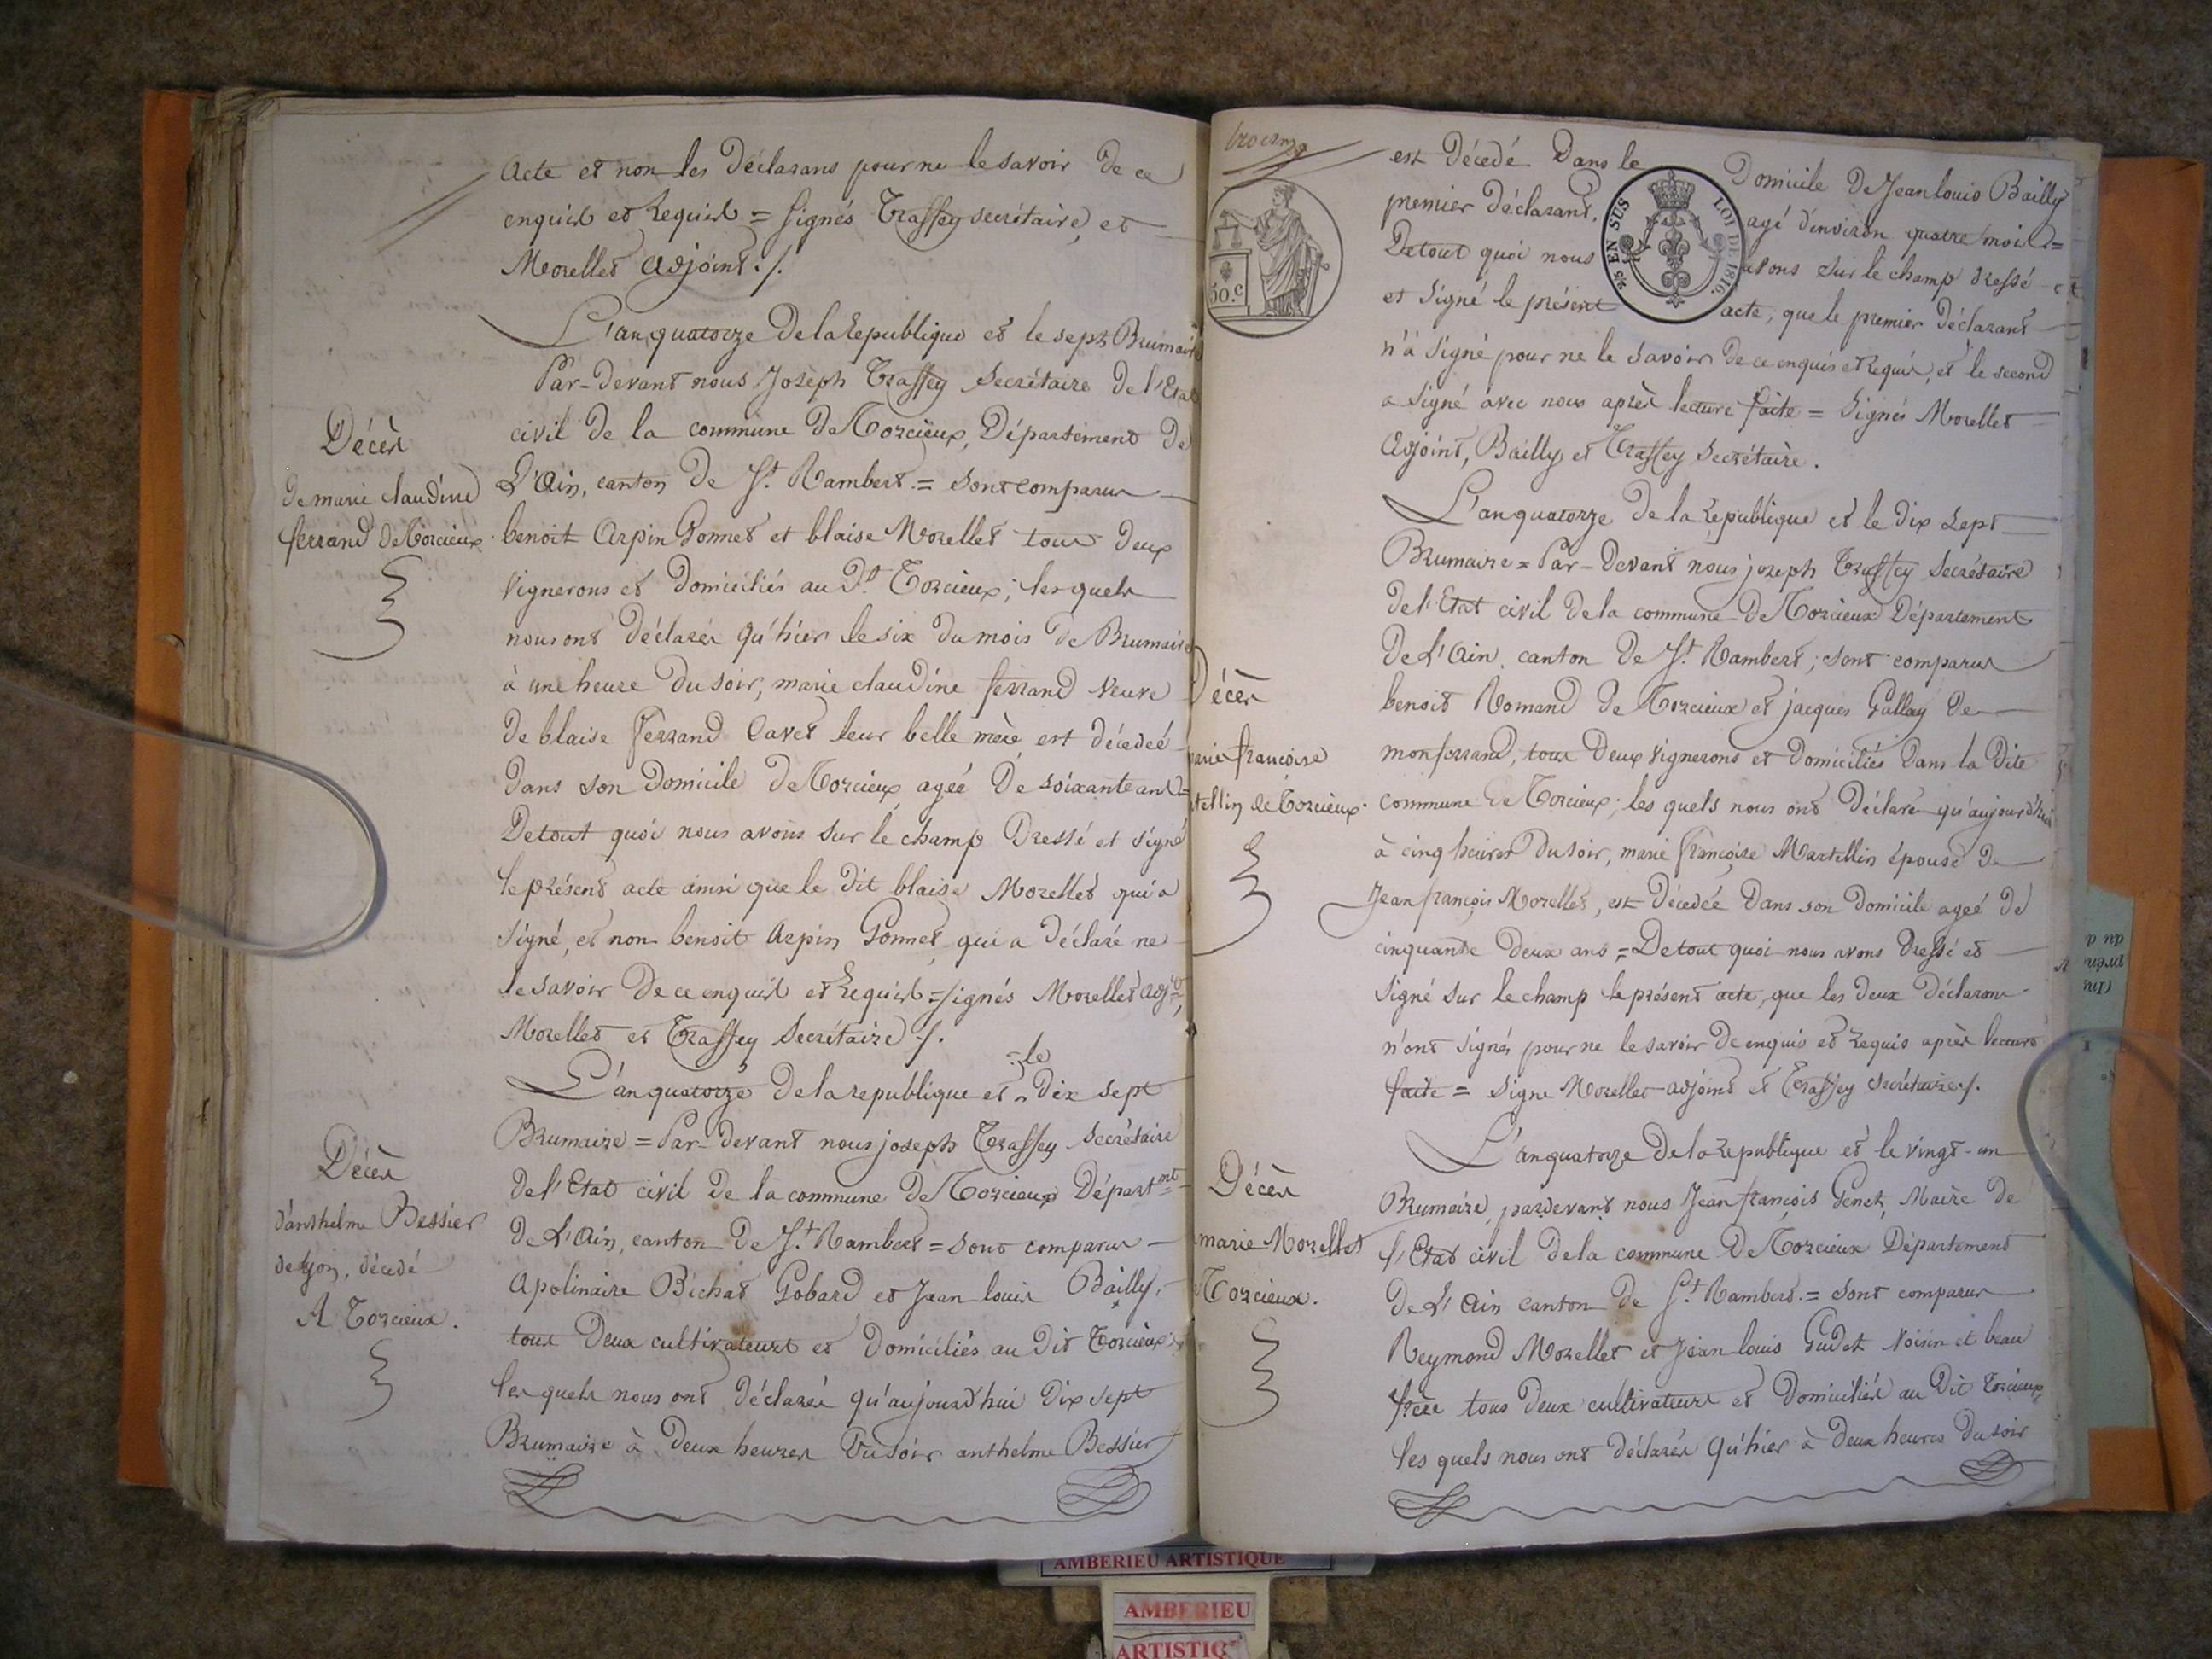 acte et non les déclarans pour ne le savoir de ce
enquis et requis = signés Trassey secrétaire, et
Morellet adjoint ./.
L'an quatorze de la republique et le sept Brumaire
Par-devant nous Joseph Trassey Secrétaire de l'Etat
Décès
civil de la commune de Torcieux, Département de
de marie claudine
L'Ain, canton de St. Rambert. = sont comparus
ferrand de Torcieux
benoit Arpin Gonnet et blaise Morellet tous deux
vignerons et domiciliés au dt. Torcieux; les quels
nous ont déclarés qu'hier le six du mois de Brumaire
à une heure du soir, marie claudine ferrand veuve
de blaise ferrand Cavet leur belle mère est décédeé
dans son domicile de Torcieux ageé de soixante ans =
De tout quoi nous avons sur le champ dressé et signé
le présent acte ainsi que le dit blaise Morellet qui a
signé, et non benoit Arpin Gonnet qui a déclaré ne
le savoir de ce enquis et requis = signés Morellet adjt,
Morellet et Trassey Secrétaire ./.
L'an quatorze de la republique et le dix sept
Brumaire = Par-devant nous joseph Trassey secrétaire
Décès
de l'Etat civil de la commune de Torcieux Départmt
d'anthelme Bessier
de L'Ain, canton de St. Rambert = sont comparus
de lyon, décédé
Apolinaire Bichat Gobard et Jean louis Bailly,
A Torcieux.
tous deux cultivateurs et domiciliés au dit Torcieux;
les quels nous ont déclarés qu'aujourd'hui dix sept
Brumaire à deux heures du soir anthelme Bessier
est décedé dans le domicile de Jean louis Bailly
premier déclarant, agé d'environ quatre mois =
50.c
EN SUS
LOI DE 1816.
De tout quoi nous avons sur le champ dressé et
et signé le présent acte, que le premier déclarant
n'a signé pour ne le savoir de ce enquis et requis, et le second
a signé avec nous après lecture faite = signés Morellet
adjoint, Bailly et Trassey Secrétaire.
L'an quatorze de la republique et le dix sept
Brumaire = Par-devant nous joseph Trassey Secrétaire
de l'Etat civil de la commune de Torcieux Département
de L'Ain. canton de St. Rambert; sont comparus
Décès
benoit Romand de Torcieux et jacques Gallay de
marie francoise
monferrand, tous deux vignerons et domiciliés dans la dite
tellin de Torcieux.
commune de Torcieux; les quels nous ont déclaré qu'aujourd'hui
à cinq heures du soir, marie françoise Martellin épouse de
Jean françois Morellet, est décedée dans son domicile ageé de
cinquante deux ans = De tout quoi nous avons dressé et
signé sur le champ le présent acte, que les deux déclarans
n'ont signés pour ne le savoir de enquis et requis après lecture
faite = signe Morellet adjoint et Trassey secrétaire ./.
L'an quatorze de la republique et le vingt-un
Décès
Brumaire, pardevant nous Jean françois Genet, Maire de
marie Morellet
l'Etat civil de la commune de Torcieux Département
Torcieux.
de L'Ain canton de St. Rambert. = sont comparus
Reymond Morellet et Jean louis Gudet voisin et beau
frère tous deux cultivateurs et domiciliés au dit Torcieux
les quels nous ont déclarés qu'hier à deux heures du soir
AMBERIEU ARTISTIQUE
AMBERIEU
ARTISTIQ